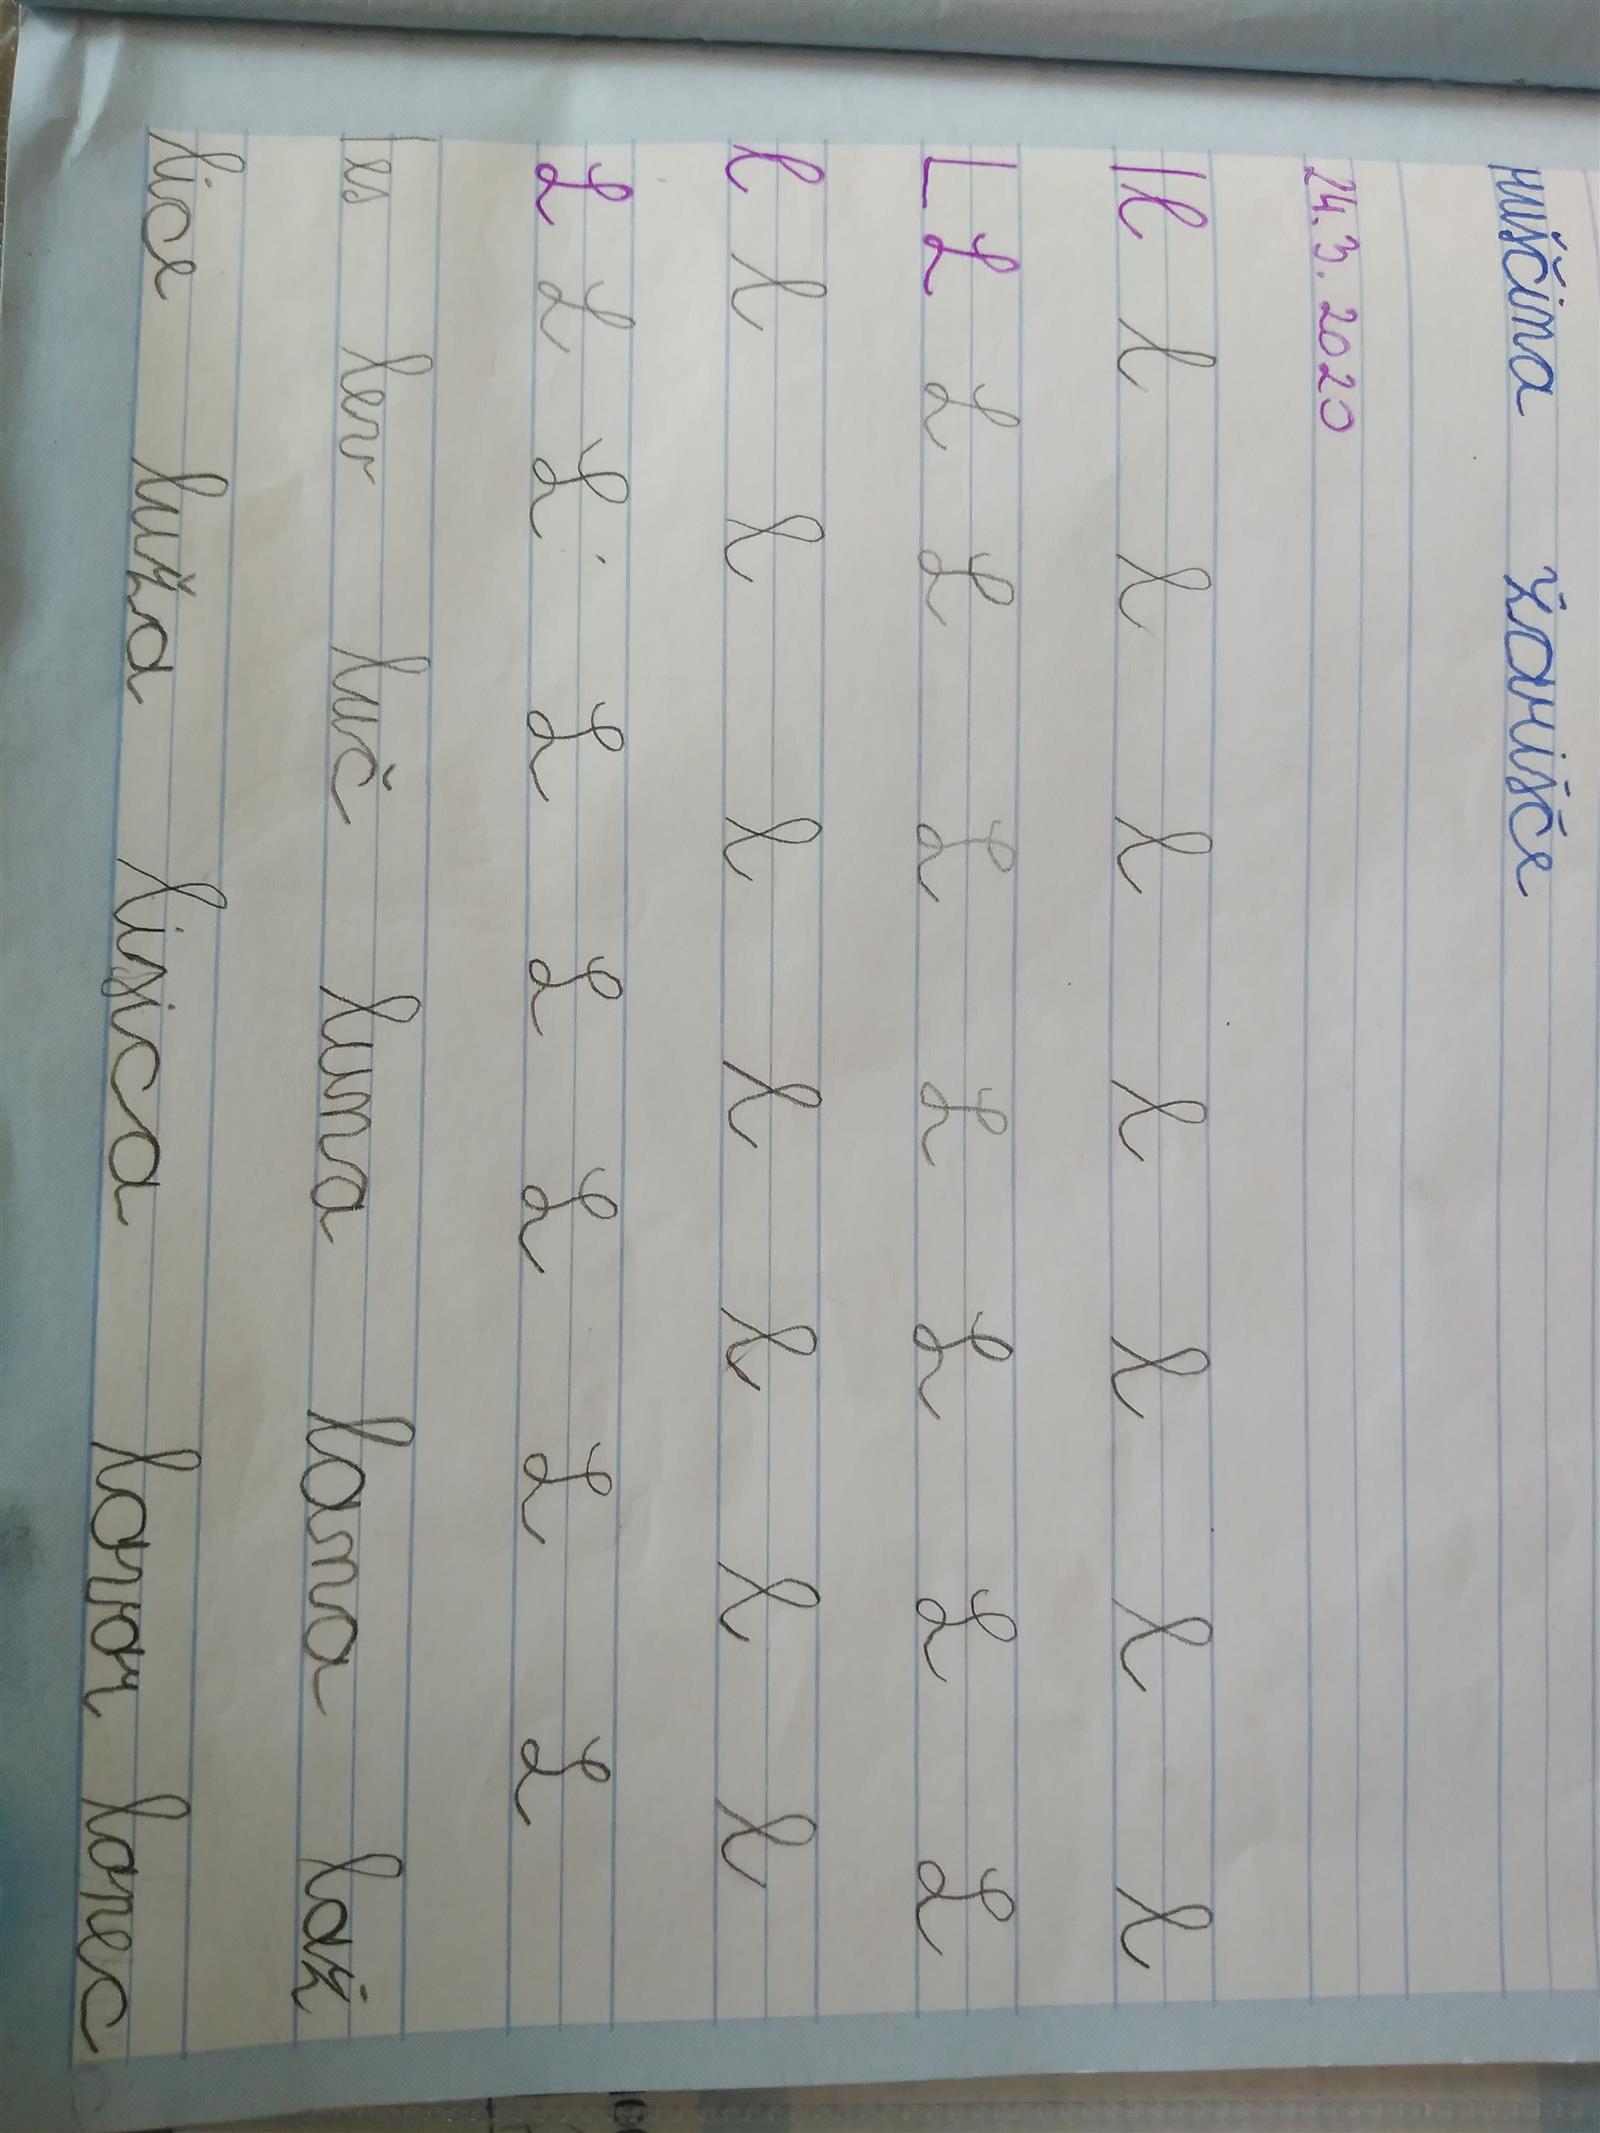 ruščina žarišče
24. 3. 2020
l l l l l l l l l
L L L L L L L L L
l l l l l l l l
L L L L L L L L
les lev luč luna lana laž
lice luža lisica lovor lonec